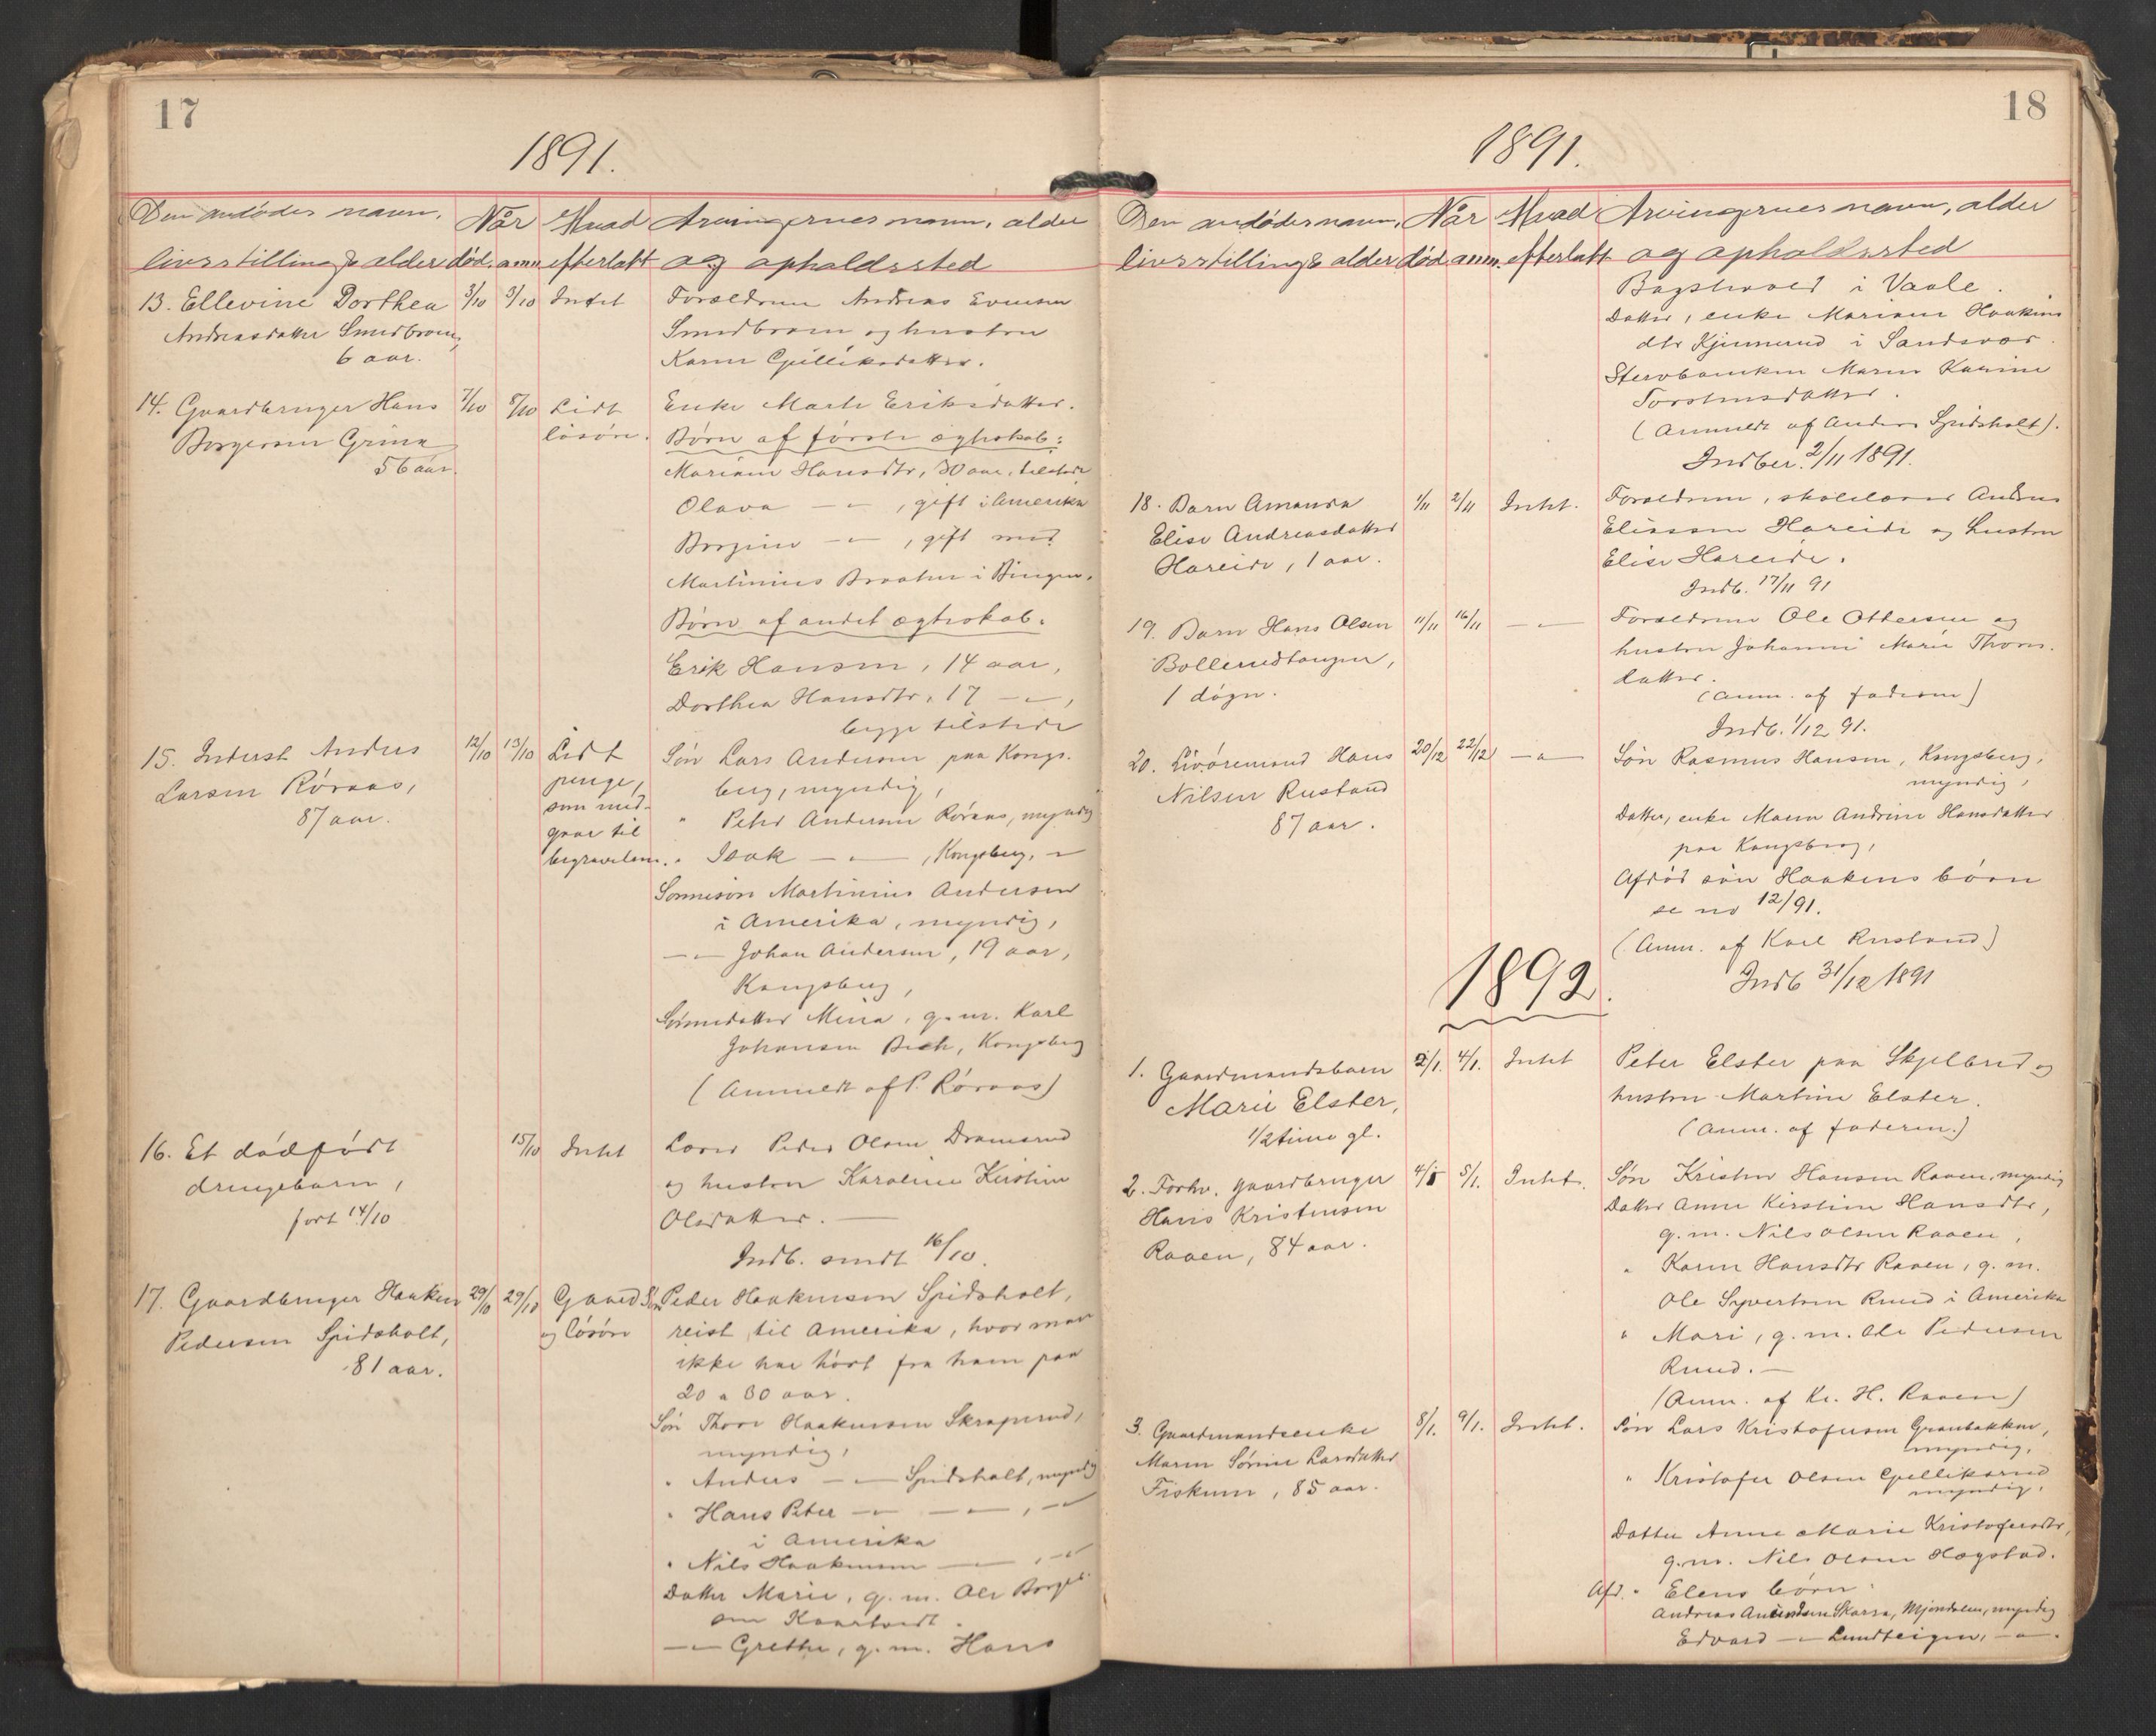 17
1891.
Den avdødes navn, Når Hvad Arvingernes navn, alder
livsstilling & alder død. anm. efterlatt og opholdssted
13. Ellevine Dorthea 3/10 3/10 Intet Forældrene Andreas Evensen
Andreasdatter Smedbroen, Smedbroen og hustru
6 aar. Karen Gjelliksdatter.
14. Gaardbruger Hans 7/10 8/10 Lidt Enke Marte Eriksdatter.
Borgersen Grina løsøre. Børn af første ægteskab:
56 aar. Mariane Hansdtr, 30 aar, tilstede
Olava — " — , gift i Amerika
Borgine — " — , gift med
Martinius Braaten i Bingen.
Børn af andet ægteskab.
Erik Hansen, 14 aar,
Dorthea Hansdtr, 17 — " — ,
begge tilstede
15. Inderst Anders 12/10 13/10 Lidt Søn Lars Andersen paa Kongs-
Larsen Røraas, penge, berg, myndig,
87 aar. som med- " Peder Andersen Røraas, myndig
gaar til
begravelsen. " Isak — " — , Kongsberg, — "
Sønnesøn Martinius Andersen
i Amerika, myndig,
— " — Johan Andersen, 19 aar,
Kongsberg,
Sønnedatter Mina, g. m. Karl
Johansen Bech, Kongsberg
(Anmeldt af P. Røraas)
16. Et dødført 15/10 Intet Lærer Peder Olsen Dramsrud
drengebarn, og hustru Karoline Kirstine
født 14/10 Olsdatter. —
Indb. sendt 16/10.
17. Gaardbruger Haaken 29/10 29/10 Gaard Søn Peder Haakensen Spidsholt,
Pedersen Spidsholt, og løsøre reist til Amerika, hvor man
81 aar. ikke har hørt fra ham paa
20 a 30 aar.
Søn Thore Haakensen Skraperud,
myndig,
" Anders — " — Spidsholt, myndig
" Hans Peter — " — — " — , — "
i Amerika
" Nils Haakensen — " — , — "
Datter Marie, g. m. Ole Borger-
sen Kaartvedt.
— " — Grethe, g. m. Hans
18
1891.
Den avdødes navn, Når Hvad Arvingernes navn, alder
livsstilling & alder død anm. efterlatt og opholdssted
i Vaale.
Datter, enke Mariane Haakens
dtr Kjennerud i Sandsvær.
Stervboenken Maren Karine
Torstensdatter.
(Anmeldt af Anders Spidsholt).
Indber. 2/11 1891.
18. Barn Amanda 1/11 2/11 Intet. Forældrene, skolelærer Andreas
Elise Andreasdatter Eliassen Hareide og hustru
Hareide, 1 aar. Elise Hareide.
Indb. 17/11 91
19. Barn Hans Olsen 11/11 16/11 — " — Forældrene Ole Ottersen og
Bollerudtangen, hustru Johanne Marie Thors-
1 døgn. datter.
(Anm. af faderen)
Indb. 1/12 91.
20. Livøremand Hans 20/12 22/12 — " — Søn Rasmus Hansen, Kongsberg,
Nilsen Rustand myndig,
87 aar. Datter, enke Maren Andrine Hansdatter
paa Kongsberg,
Afdød søn Haakens børn
se no 12/91.
(Anm. af Karl Rustand)
Indb 31/12 1891
1892.
1. Gaardmandsbarn 2/1. 4/1. Intet Peter Elster paa Skjelbred og
Marie Elster, hustru Martine Elster.
1/2 time gl. (Anm. af faderen.)
2. Forhv. gaardbruger 4/1 5/1. Intet. Søn Kristen Hansen Raaen, myndig
Hans Kristensen Datter Anne Kirstine Hansdtr,
Raaen, 84 aar. g. m. Nils Olsen Raaen,
" Karen Hansdtr Raaen, g. m.
Ole Syvertsen Ruud i Amerika
" Mari, g. m. Ole Pedersen
Ruud. —
(Anm. af Kr. H. Raaen)
3. Gaardmandsenke 8/1. 9/1. Intet. Søn Lars Kristofersen Granbakken,
Maren Sørine Larsdatter myndig,
Fiskum, 85 aar. " Kristofer Olsen Gjelliksrud
myndig,
Datter Anne Marie Kristofersdtr,
g. m. Nils Olsen Hægstad.
Afd. " Elens børn:
Andreas Amundsen Skarra, Mjøndalen, myndig
Edvard — " — Lundteigen, — " —